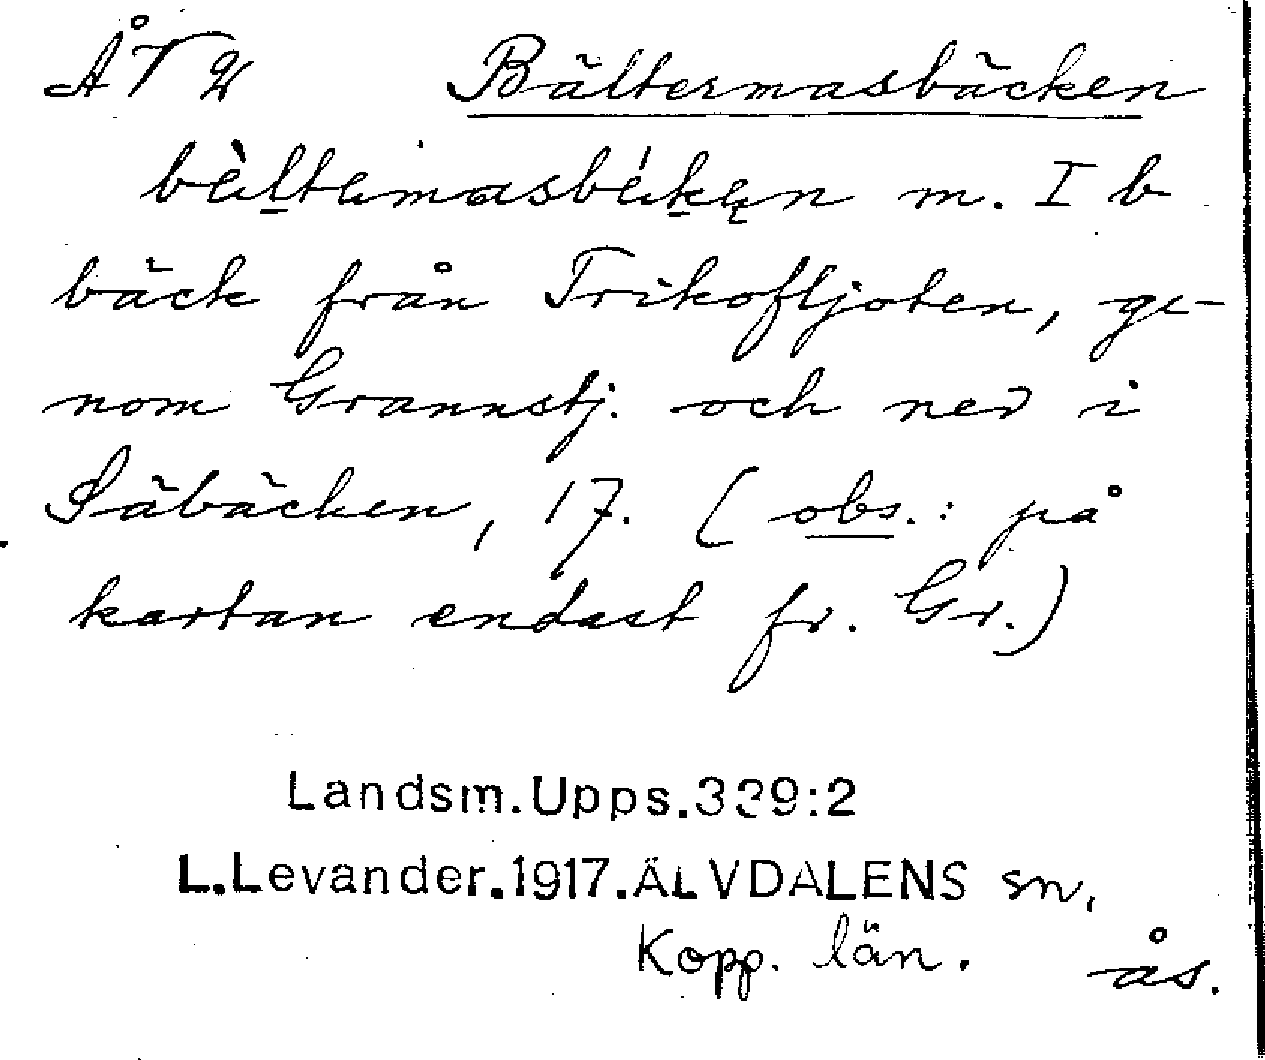 ÅT 2 Bältermasbäcken
bèltȧmasbékęn m. I b
bäck från Trikofljoten, ge-
nom Grannstj. och ned i
Säbäcken, 17. (obs.: på
kartan endast fr. Gr.)
Landsm.Upps.339:2
L.Levander.1917.ÄLVDALENS sn.
Kopp. län. ås.